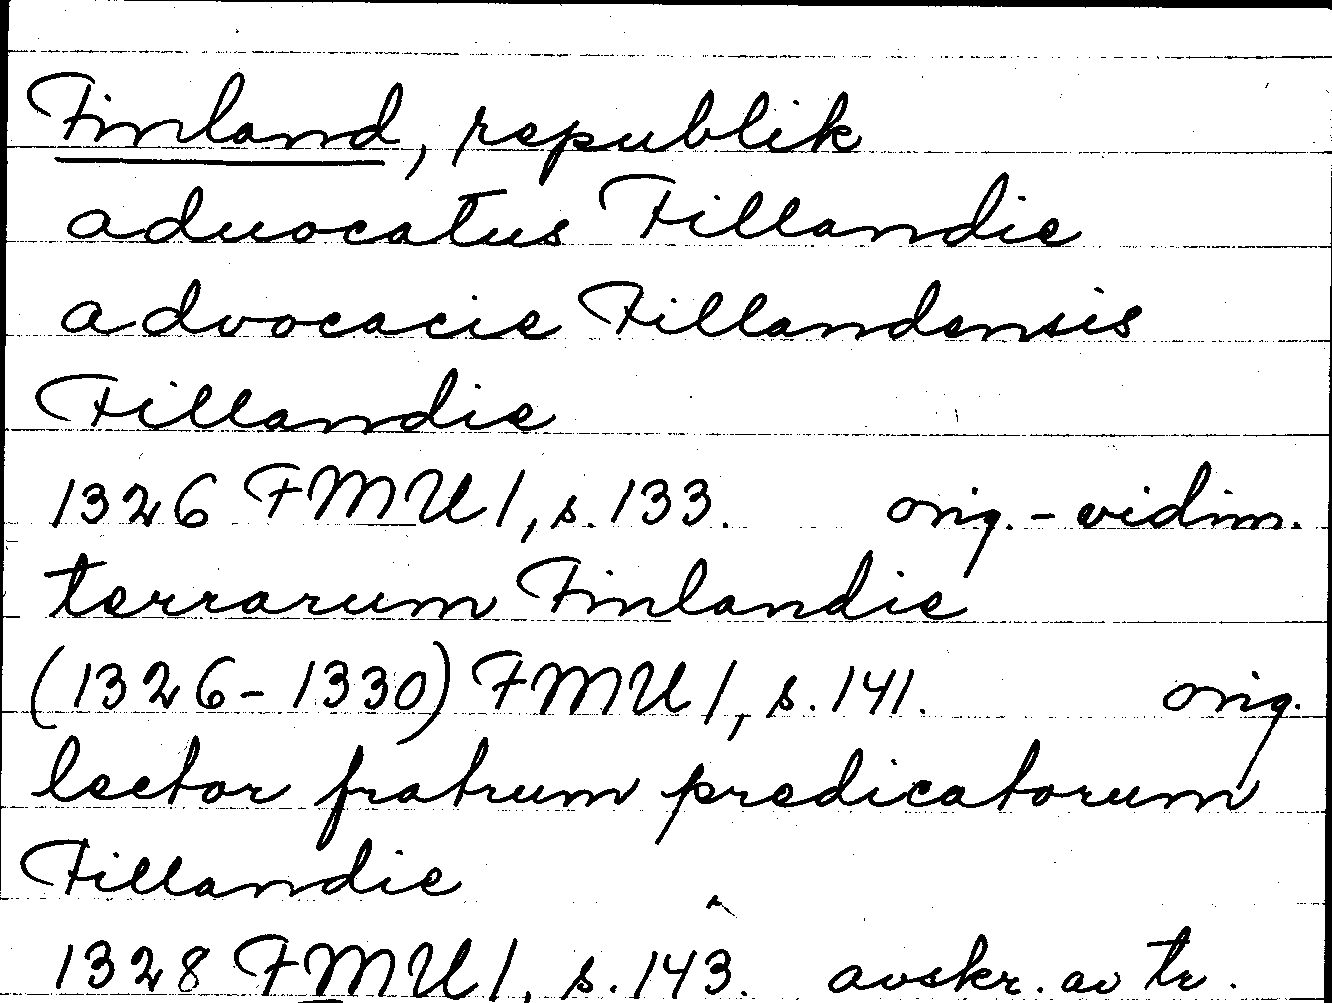 Finland, republik
aduocatus Fillandie
advocacie Fillandensis
Fillandie
1326 FMU 1, s. 133. orig. - vidim.
terrarum Finlandie
(1326 - 1330) FMU 1, s. 141. orig.
lector fratrum predicatorum
Fillandie
1328 FMU 1, s. 143. avskr. av tr.